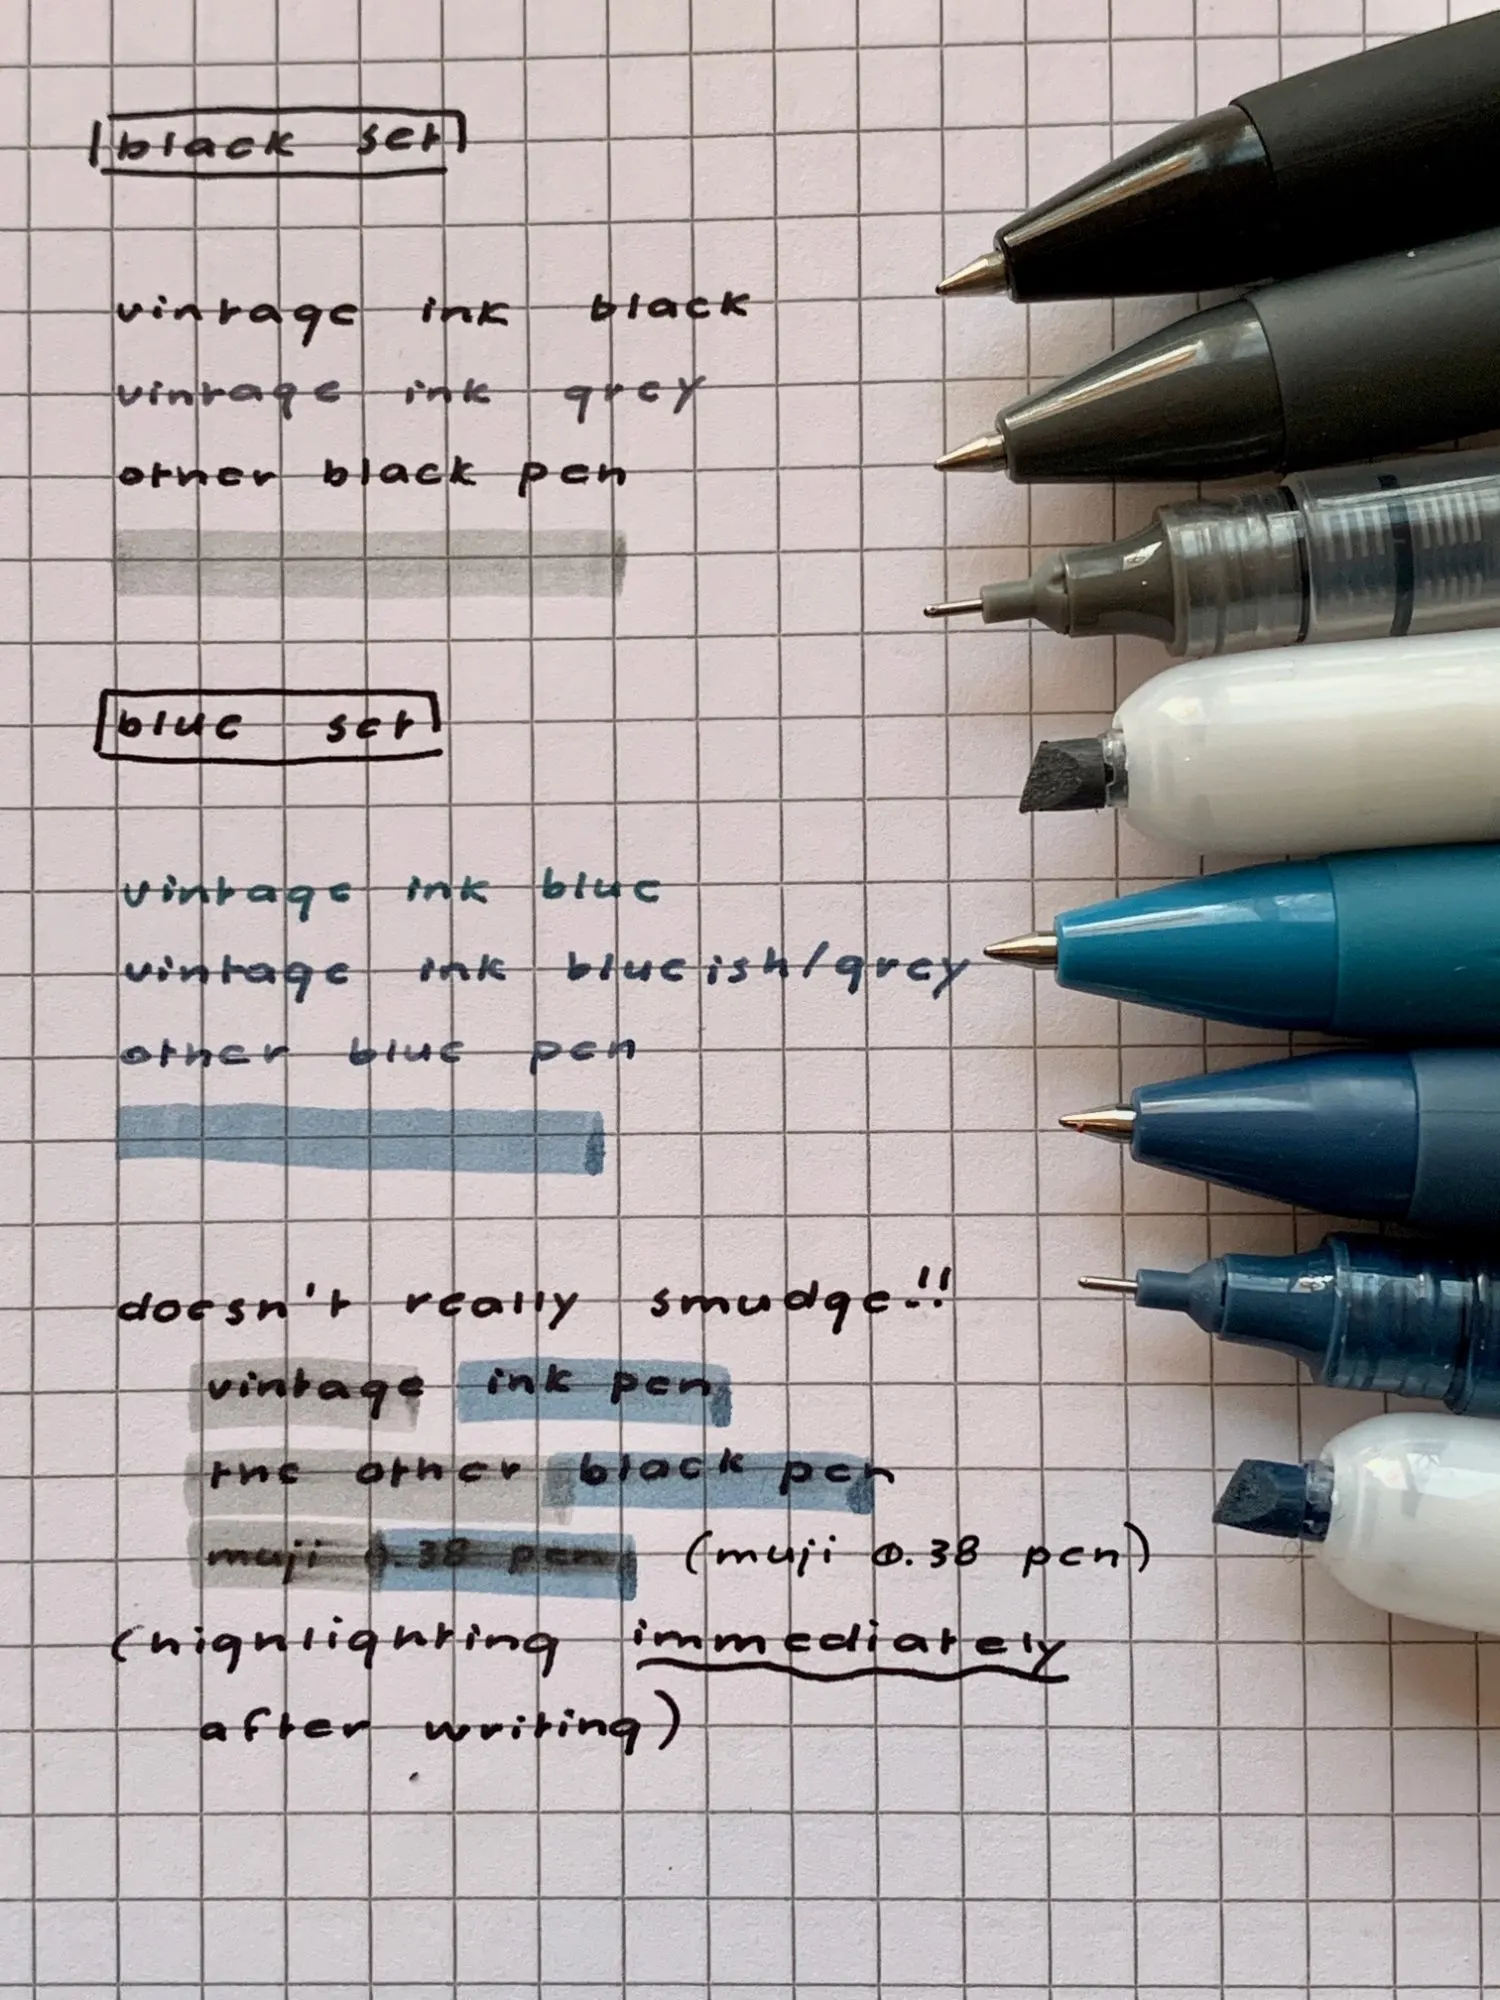 black set
vintage ink black
vintage ink grey
other black pen
blue set
vintage ink blue
vintage ink blueish/grey
other blue pen
doesn't really smudge!!
vintage ink pen
the other black pen
muji 0.38 pen (muji 0.38 pen)
(highlighting immediately
after writing)